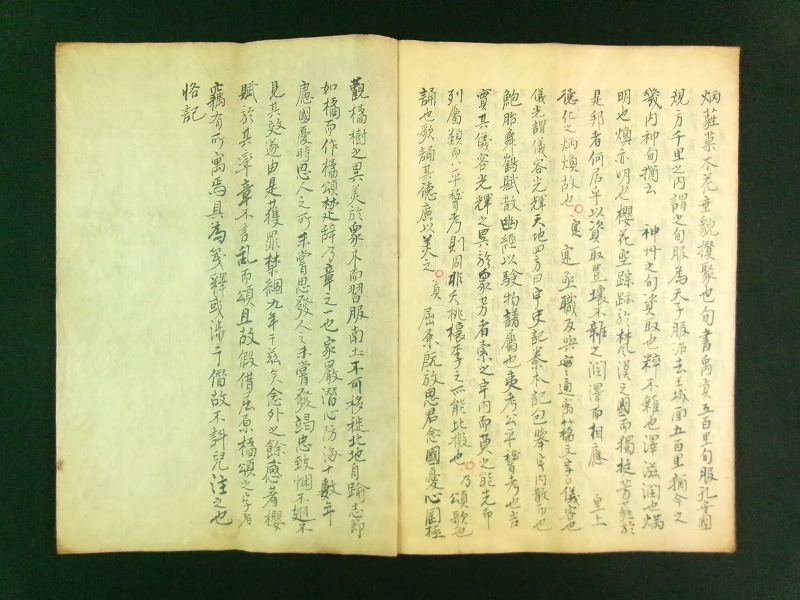 炳蕤菜木花垂貌攢聚也旬書禹貢五百里旬服孔安國
規方千里之内謂之旬服為天子服治去王城面五百里猶今之
畿内神旬猶云　神州之旬資取也粹不雜也澤滋潤也煥
明也煥亦明也櫻花空踪跡於梵漢之國而獨挺芳於
是邦者何居乎以資取豊壤不雜之潤澤而相應　皇上
德化之炳煥故也寔寔丞職友與通寓橘文宇曰儀容也
儀光謂儀容光輝天地四方曰宇史記秦本記包擧宇内散布也
鮑照舞鶴賦散幽經以驗物譜屬也夷考公平稽考也言
實其儀容光輝之異於衆芳者索之宇内而莫之能先而
列屬類而公平稽考則固非夭桃穠李之所能比擬也乃頌歌也
誦也歌誦其德廣以美之貞屈原既放思君念國憂心罔極
觀橘樹之異美於衆木而習服南土不可移徙北地自踰志節
如橘而作橘頌楚辭乃章之一也家嚴潛心防海十數年
慮國憂時思人之所未嘗思發人之未嘗發竭忠致悃不翅不
見其效遂由是獲罪禁錮九年于茲矣念外之餘感着櫻
賦於其卒章不言乱而頌且故假借屈原橘頌之字者
竊有所寓焉具為箋釋或涉于僭故不許兒注之也
恪記